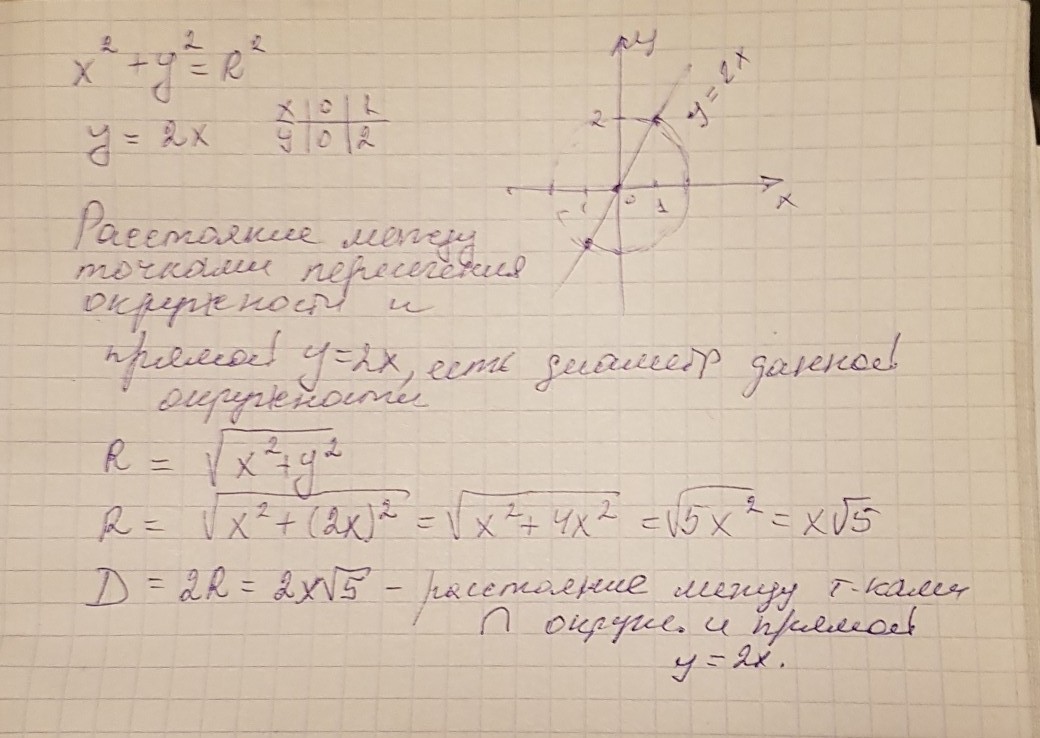 x² + y² = R²
y = 2x
x | 0 | 1
y | 0 | 2
y
y = 2x
2
0 1
x
Расстояние между
точками пересечения
окружности и
прямой y=2x, есть диаметр данной
окружности
R = √(x²+y²)
R = √(x²+(2x)²) = √(x²+4x²) = √(5x²) = x√5
D = 2R = 2x√5 – расстояние между т-ками
∩ окруж. и прямой
y = 2x.